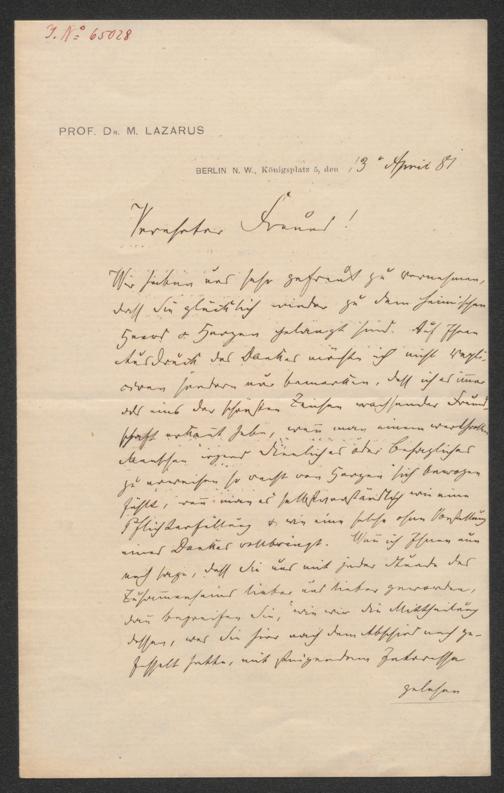 I. Nº 65028
PROF. DR. M. LAZARUS
BERLIN N. W., Königsplatz 5, den 13 April 81
Verehrter Freund!
Wir haben uns sehr gefreut zu vernehmen,
daß Sie glücklich wieder zu dem heimischen
Heerd & Herzen gelangt sind. Auf Ihren
Ausdruck des Dankes möchte ich nicht repli-
ciren sondern nur bemerken, daß ich es immer
als eins der schönsten Zeichen wachsender Freund-
schaft erkannt habe, wenn man einem werthvollen
Menschen irgend Dienliches oder Behagliches
zu erweisen so recht von Herzen sich bewogen
fühlt, wenn man es selbstverständlich wie eine
Pflichterfüllung & wie eine solche ohne Vorstellung
eines Dankes vollbringt. Wenn ich Ihnen nun
noch sage, daß Sie uns mit jeder Stunde des
Zusammenseins lieber und lieber geworden,
dann begreifen Sie, wie wir die Mittheilung
dessen, was Sie hier nach dem Abschied noch ge-
fesselt hatte, mit steigendem Interesse
gelesen